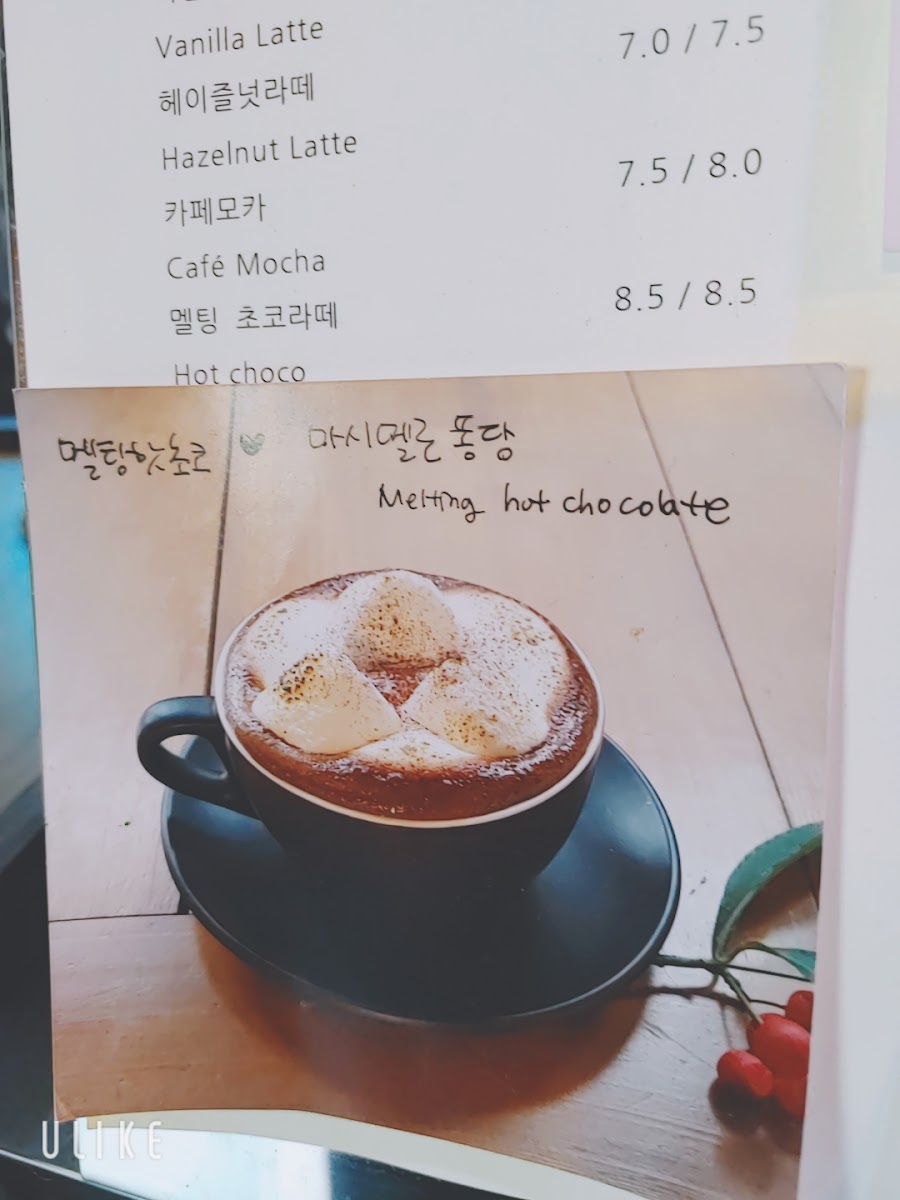 Vanilla Latte 7.0 / 7.5
헤이즐넛라떼
Hazelnut Latte
카페모카 7.5 / 8.0
Café Mocha
멜팅 초코라떼 8.5 / 8.5
Hot choco
멜팅핫초코 ♥ 마시멜로퐁당
Melting hot chocolate
ULIKE